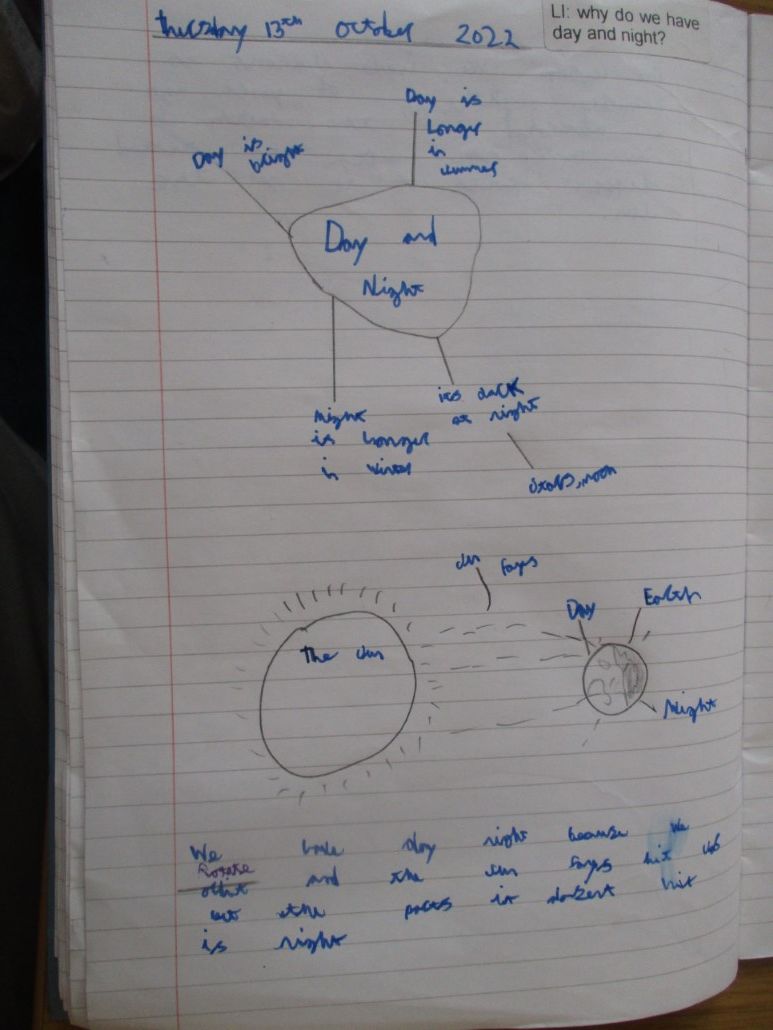 thursday 13th october 2022
LI: why do we have
day and night?
Day is
Longer
in
summer
Day is
bright
Day and
Night
its dark
at night
night
is Longer
in winter
stars, moon
sun rays
Day
Earth
The sun
Night
We have day night because We
Rotate and the sun rays hit us
but the parts it doesent hit
is night